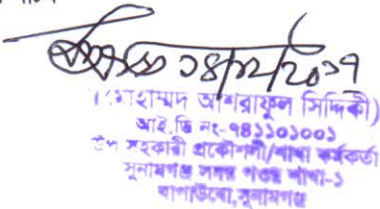 ১৪/১২/২০১৭
(মোহাম্মদ আশরাফুল সিদ্দিকী)
আই.ডি নং-৭৪১১০১০০১
উপ সহকারী প্রকৌশলী/শাখা কর্মকর্তা
সুনামগঞ্জ সদর পওর শাখা-১
বাপাউবো,সুনামগঞ্জ